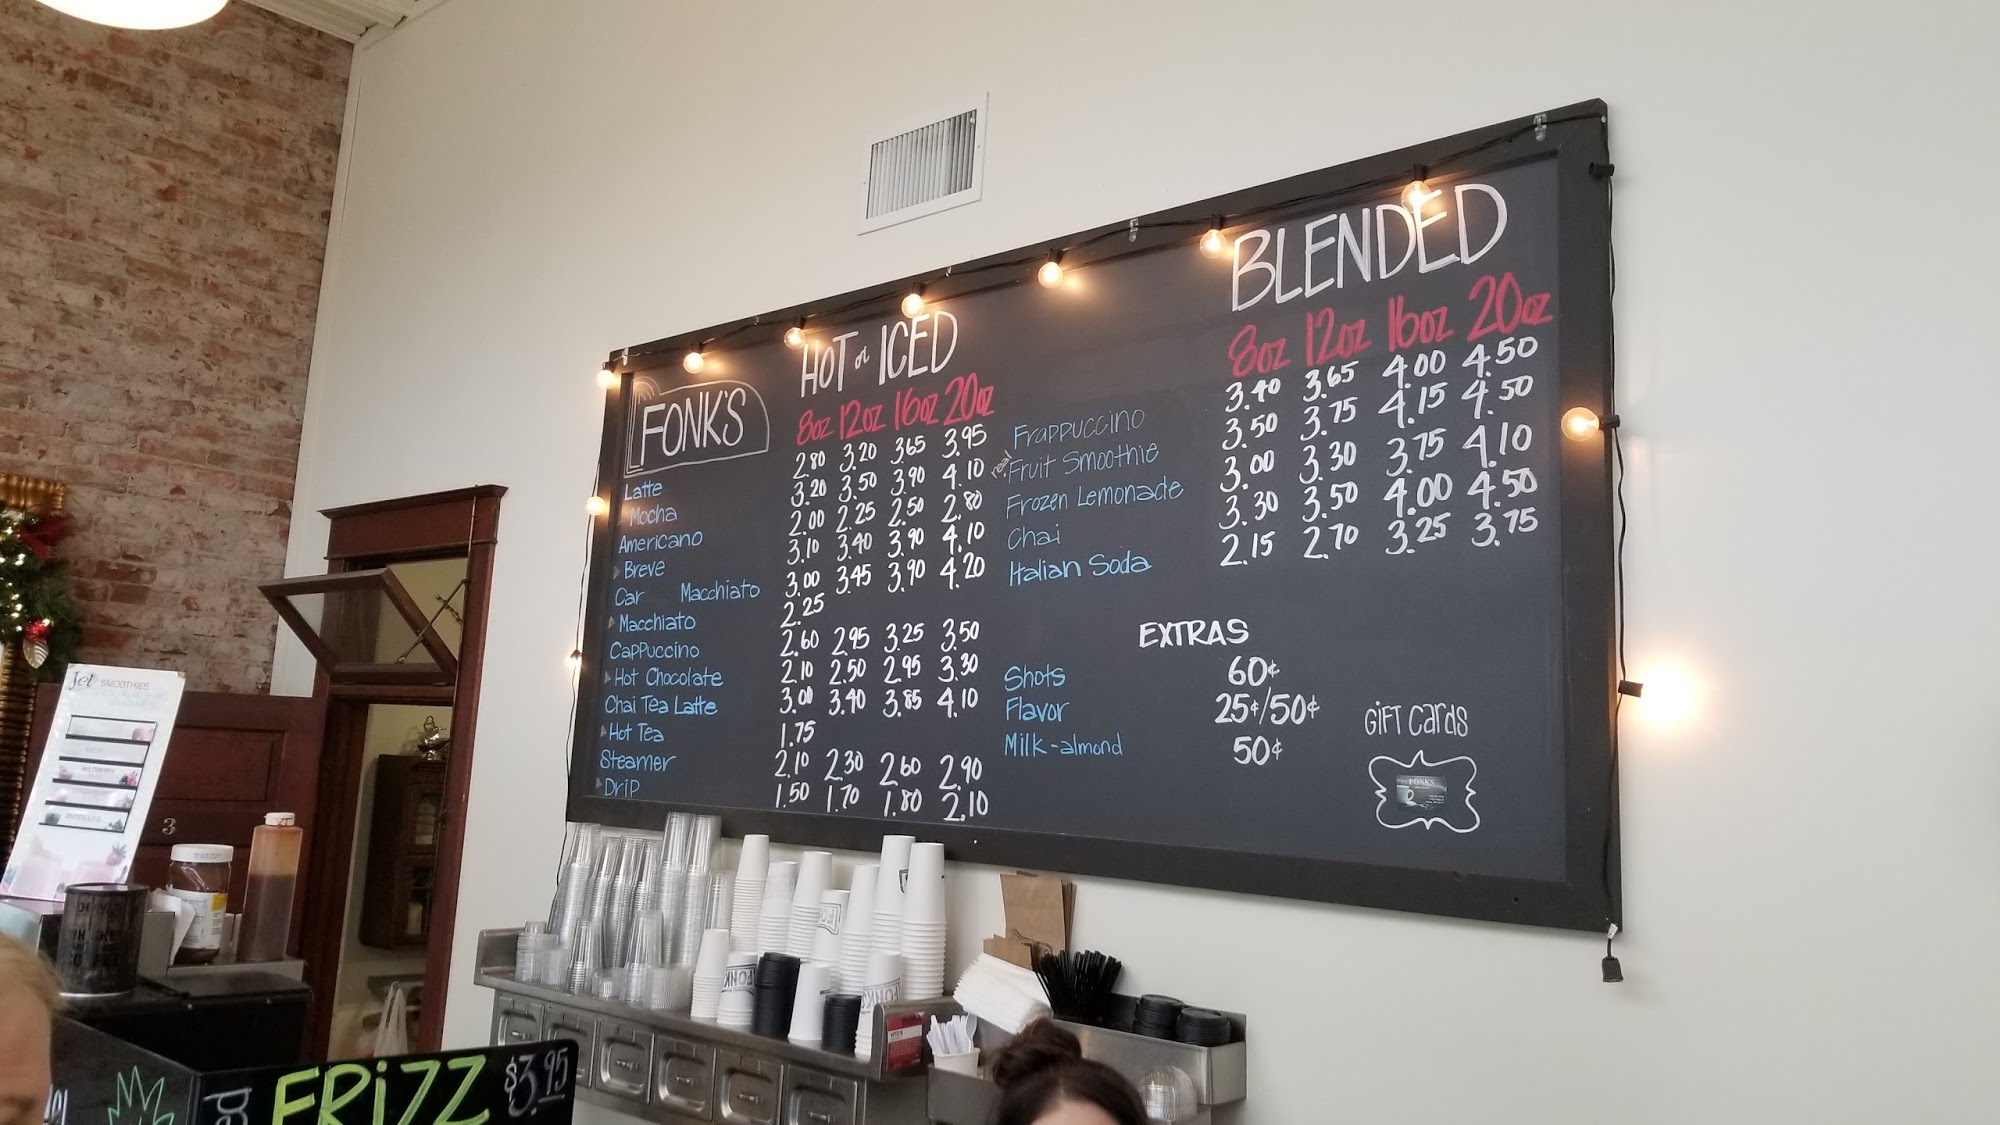 FONK'S
HOT or ICED
8oz 12oz 16oz 20oz
Latte 2.80 3.20 3.65 3.95
Mocha 3.20 3.50 3.90 4.10
Americano 2.00 2.25 2.50 2.80
Breve 3.10 3.40 3.90 4.10
Car Macchiato 3.00 3.45 3.90 4.20
Macchiato 2.25
Cappuccino 2.60 2.95 3.25 3.50
Hot Chocolate 2.10 2.50 2.95 3.30
Chai Tea Latte 3.00 3.40 3.85 4.10
Hot Tea 1.75
Steamer 2.10 2.30 2.60 2.90
Drip 1.50 1.70 1.80 2.10
BLENDED
8oz 12oz 16oz 20oz
Frappuccino 3.40 3.65 4.00 4.50
real Fruit Smoothie 3.50 3.75 4.15 4.50
Frozen Lemonade 3.00 3.30 3.75 4.10
Chai 3.30 3.50 4.00 4.50
Italian Soda 2.15 2.70 3.25 3.75
EXTRAS
Shots 60¢
Flavor 25¢/50¢
Milk-almond 50¢
GiFT Cards
FONKS
Jet SMOOTHIES
WILDBERRY
3
FONK
FRiZZ $3.95